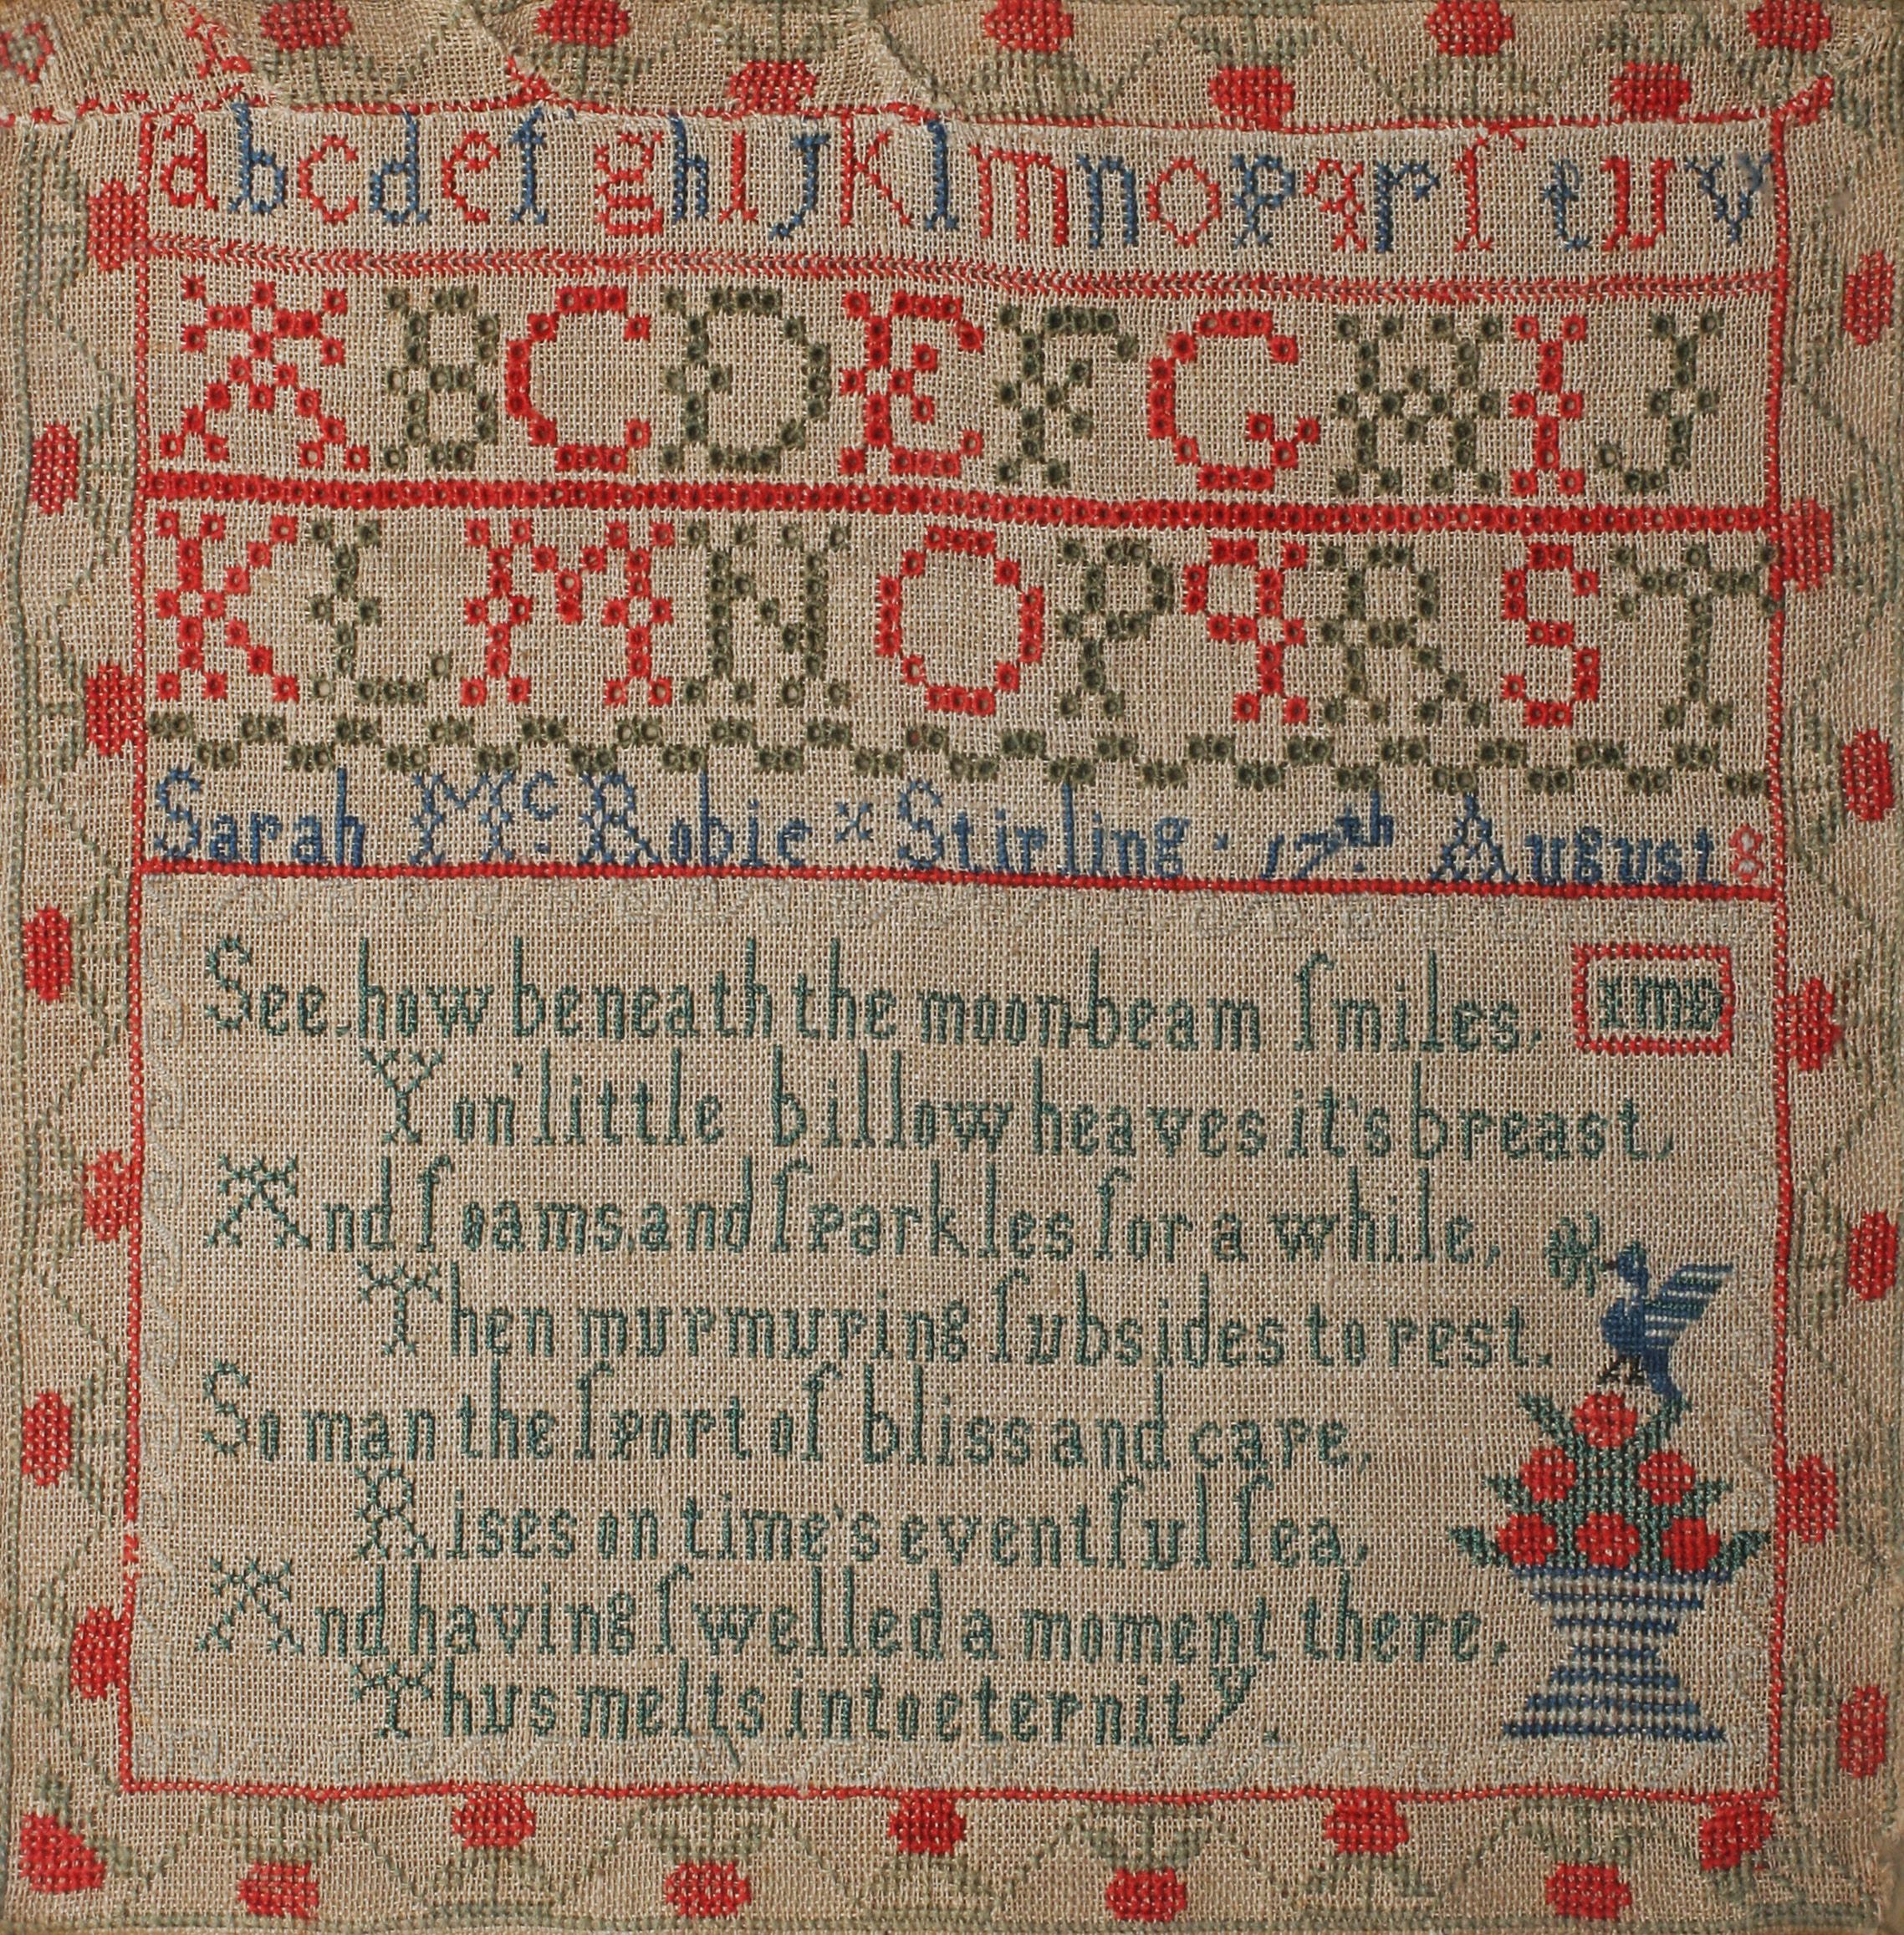 a b c d e f g h i J K l m n o p q r ſ t u v
A B C D E F G H I J
K L M N O P Q R S T
Sarah Mc. Robie x Stirling · 17.th August 8
See, how beneath the moon-beam ſmiles,
Yon' little billow heaves it's breast,
And foams and ſparkles for a while,
Then murmuring ſubsides to rest.
So man the ſport of bliss and care,
Rises on time's eventful ſea,
And having ſwelled a moment there,
Thus melts into eternity.